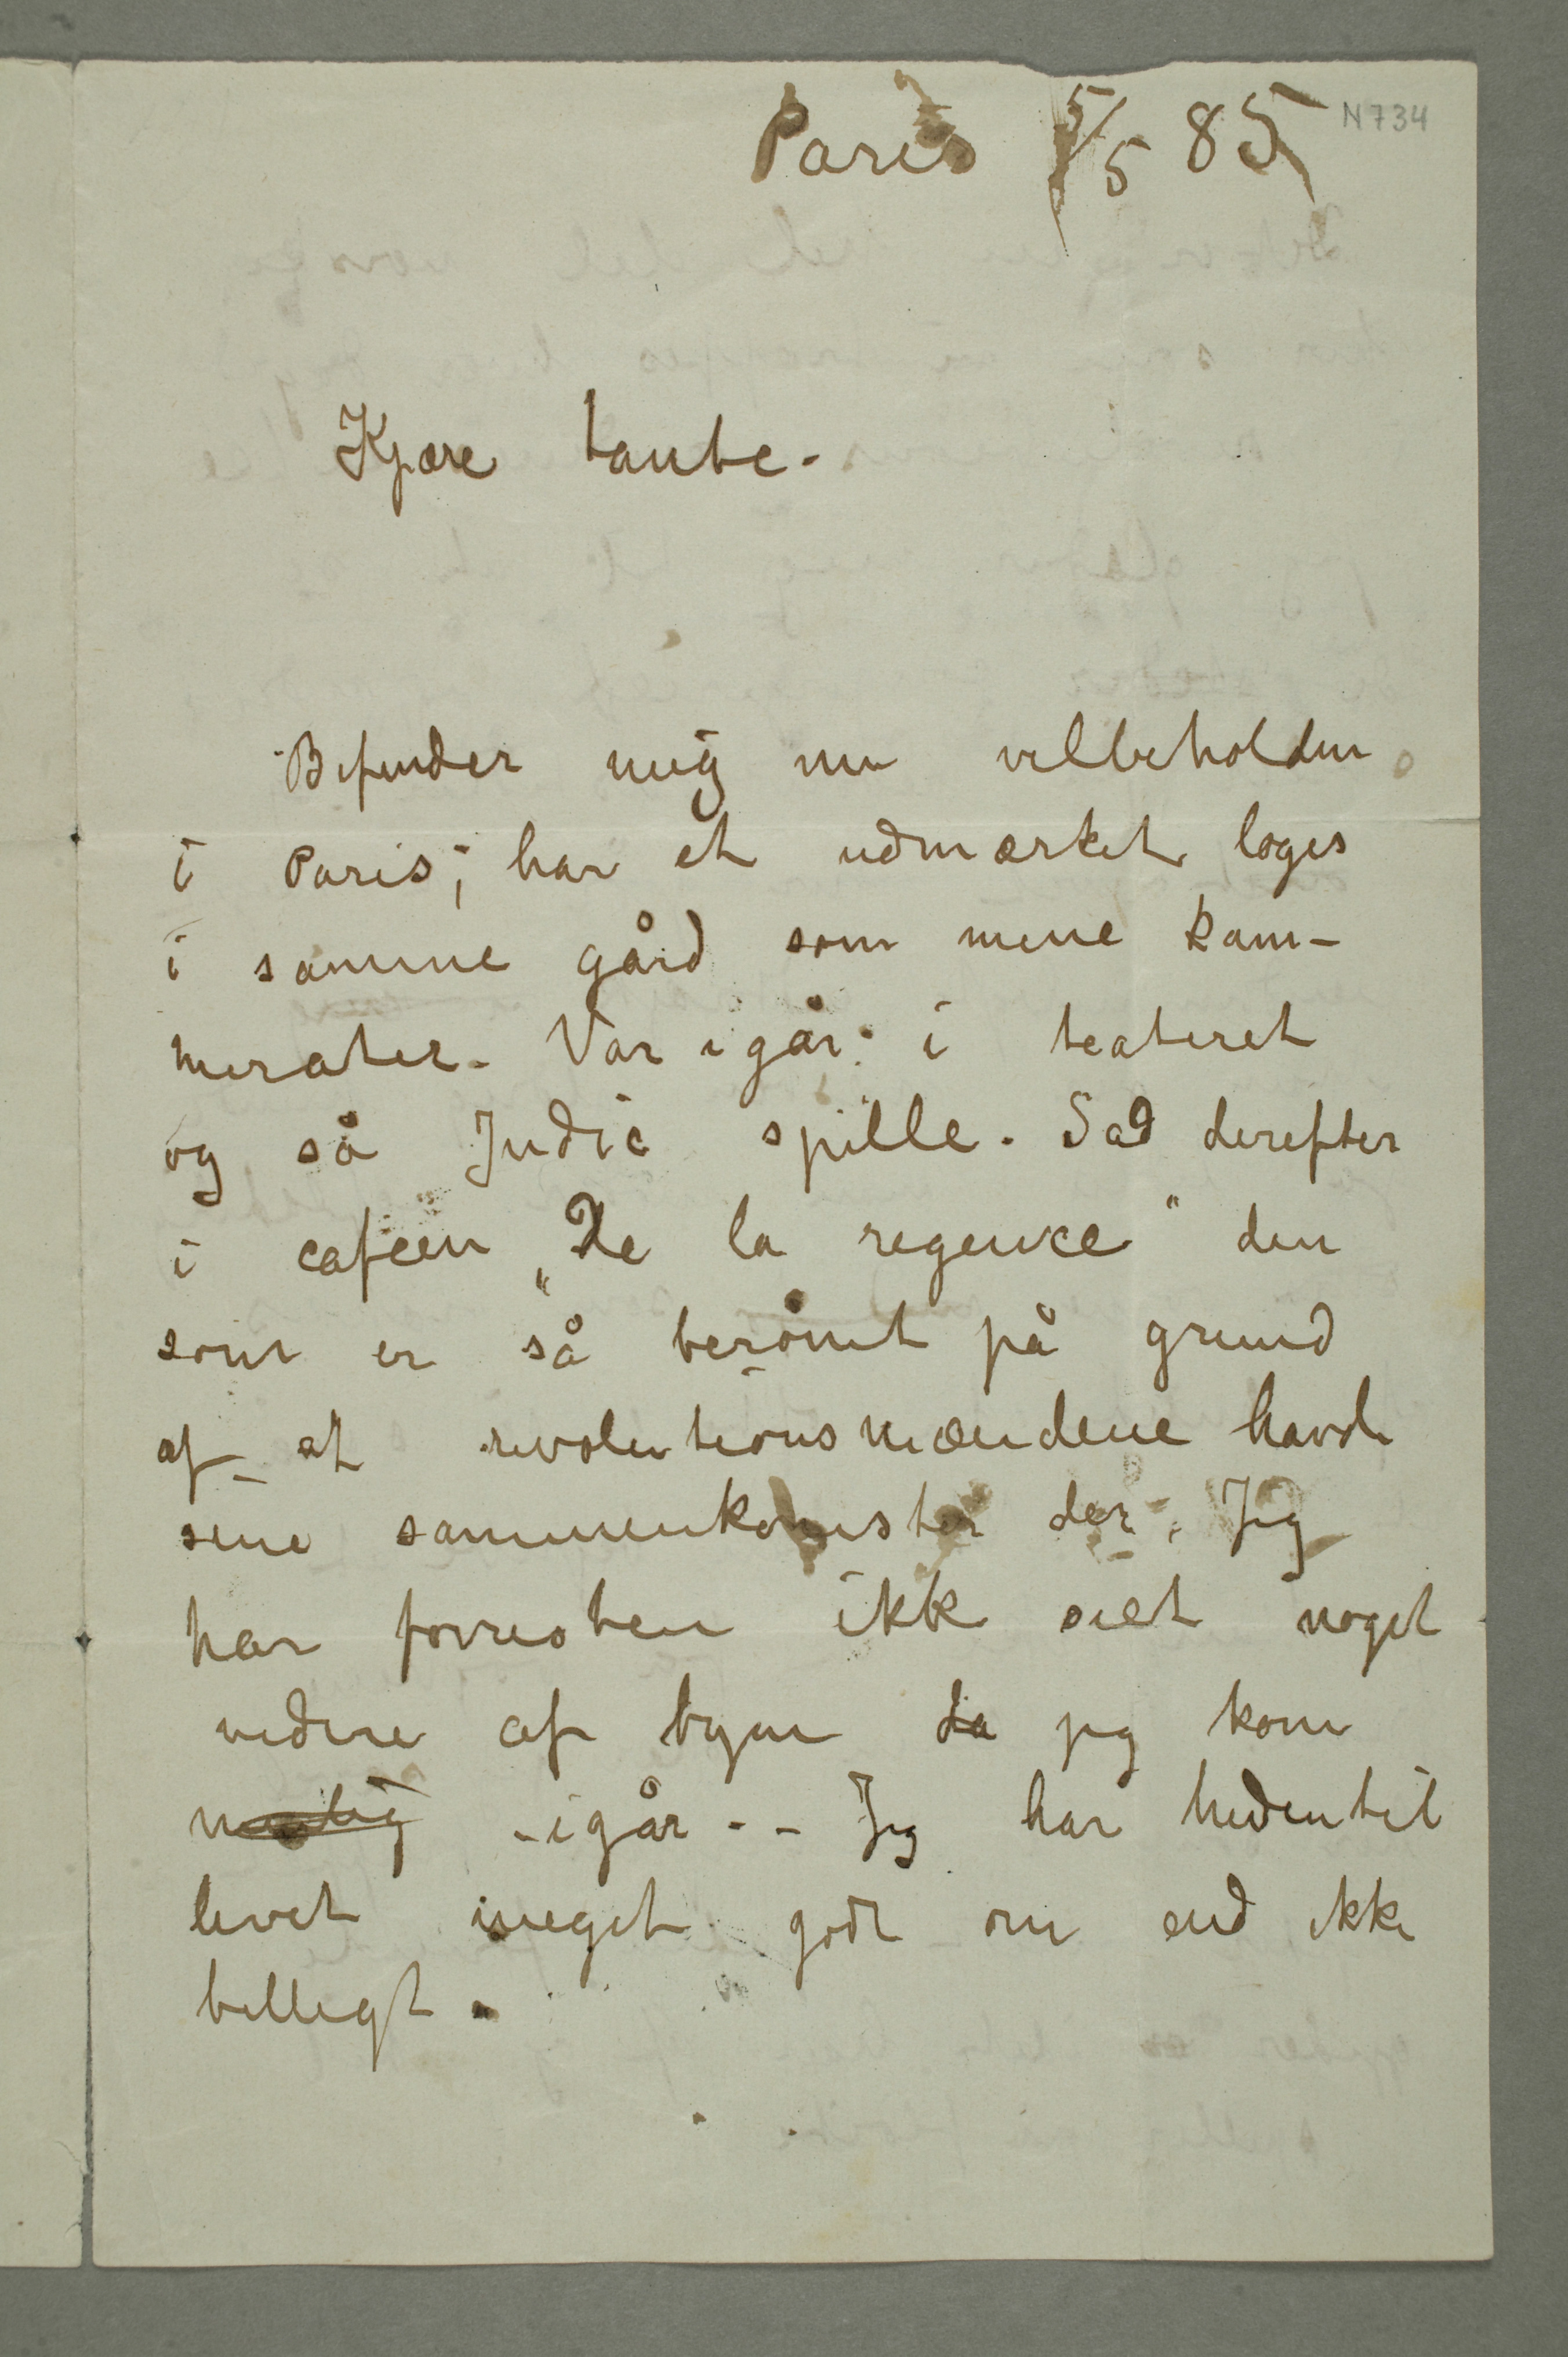 Paris 5/5 85
N734
Kjære tante.
Befinder mig nu velbeholden
i Paris; har et udmærket loges
i samme gård som mine kam-
merater. Var igår i teateret
og så Judic spille. Sad derefter
i cafeen „De la regence" den
som er så berømt på grund
af at revolutionsmændene havde
sine sammenkomster der. Jeg
har forresten ikke seet noget
videre af byen da jeg kom
igår – Jeg har hidentil
levet meget godt om end ikke
billigt.